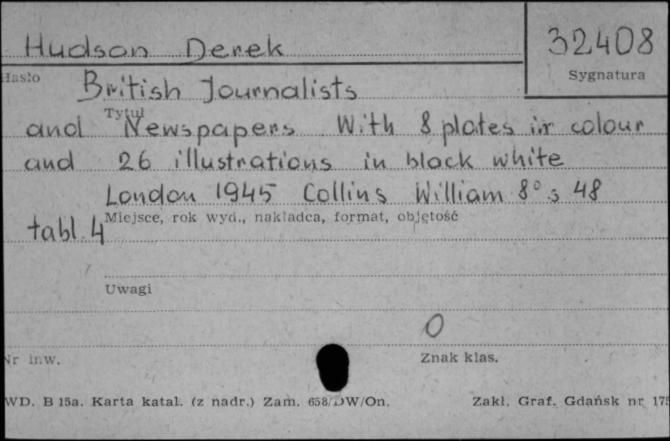 Hudson Derek
32408
Hasło
Sygnatura
British Journalists
Tytuł
and Newspapers. With 8 plates in colour
and 26 illustrations in black white
London 1945 Collins William 8° s 48
tabl. 4
Miejsce, rok wyd., nakładca, format, objętość
Uwagi
0
Nr inw.
Znak klas.
WD. B 15a. Karta katal. (z nadr.) Zam. 658/DW/On.
Zakł. Graf. Gdańsk nr 175